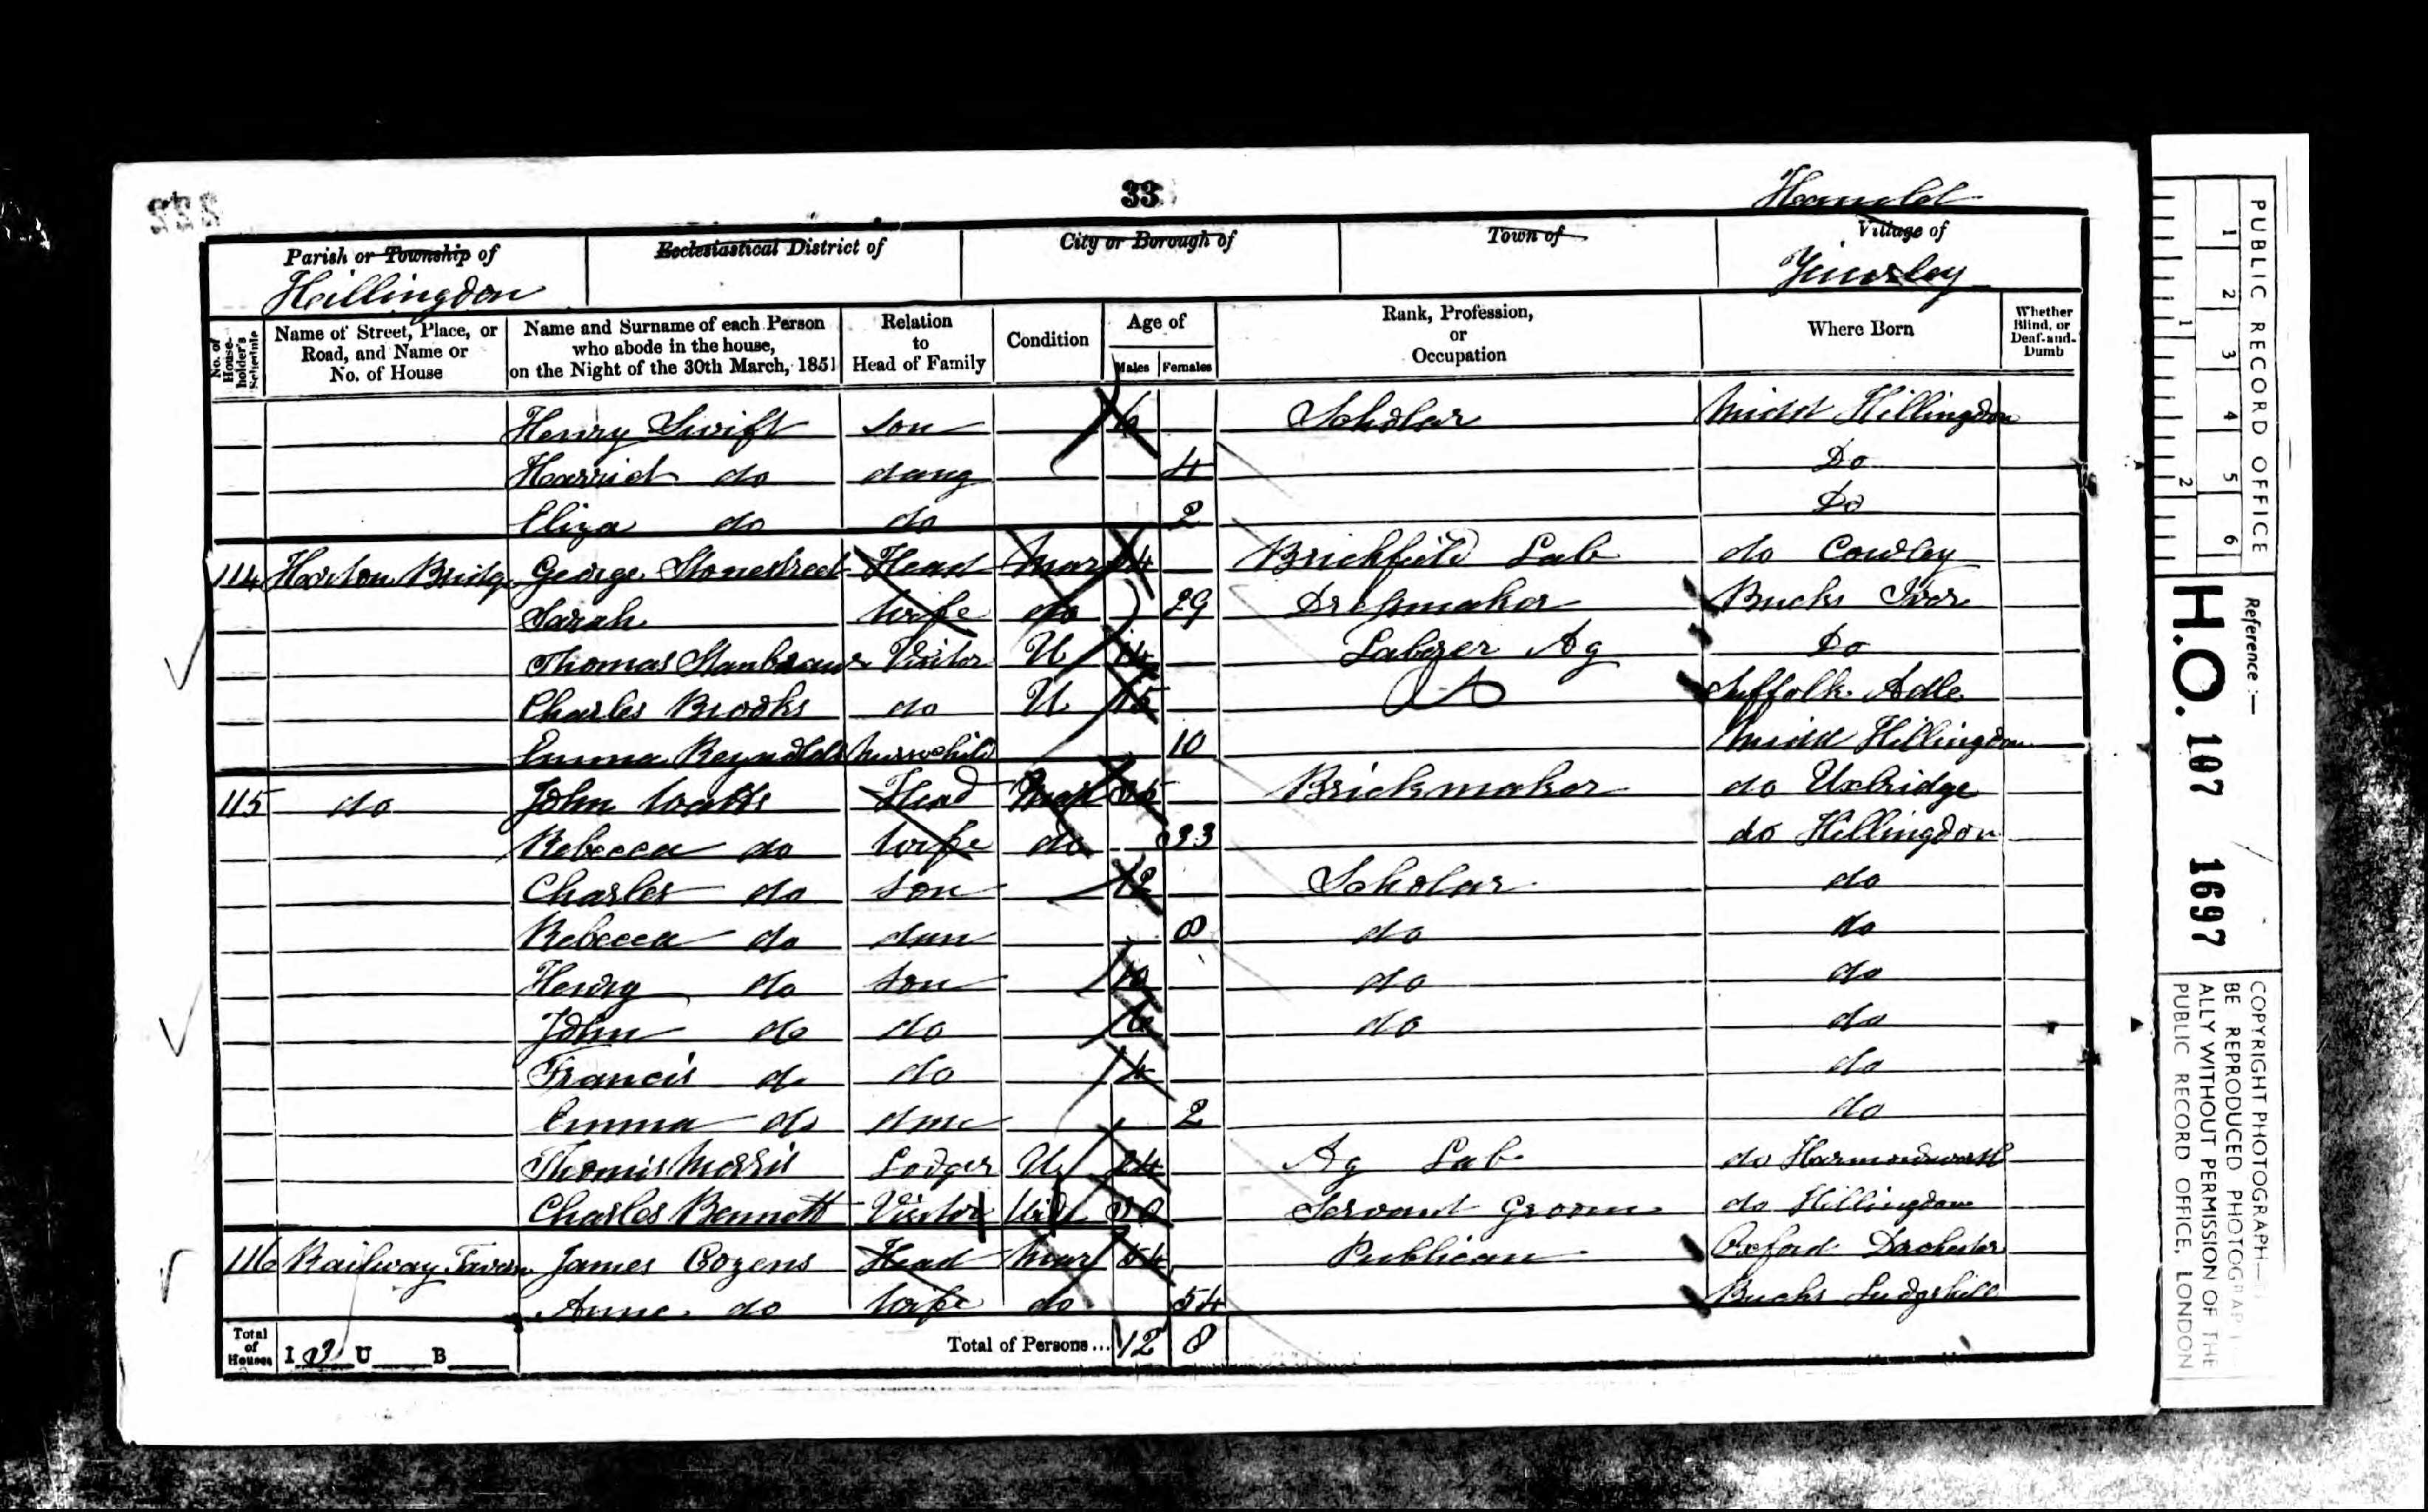 33
Parish or Township of
Hillingdon
Ecclesiastical District of
City or Borough of
Town of
Village of
Yiewsley
No. of House-holder's Schedule
Name of Street, Place, or Road, and Name or No. of House
Name and Surname of each Person who abode in the house, on the Night of the 30th March, 1851
Relation to Head of Family
Condition
Age of
Males Females
Rank, Profession, or Occupation
Where Born
Whether Blind, or Deaf-and-Dumb
Henry Swift son Scholar Midd Hillingdon
Harriet do daug 4 Do
Eliza do do 2 Do
114 Horton Bridge George Stonestreet Head Mar Brickfield Lab do Cowley
Sarah Wife do 29 Dressmaker Bucks Iver
Thomas Visitor U 14 Laborer Ag Do
Charles Brooks do U 15 Suffolk
Emma Reynolds Nursechild 10 Midd Hillingdon
115 do John Watts Head Mar 35 Brickmaker do Uxbridge
Rebecca do Wife do 33 do Hillingdon
Charles do son 12 Scholar do
Rebecca do dau 8 do do
Henry do son 10 do do
John do do 6 do do
Francis do do 4 do
Emma do 2 do
Thomas Morris Lodger U 24 Ag Lab do Harmondsworth
Charles Bennett Visitor Servant Groom do Hillingdon
116 Railway Tavern James Cozens Head Mar 54 Publican Oxford Dochester
Anne do Wife do 54 Bucks
Total of Houses I 3 U B Total of Persons... 12 8
PUBLIC RECORD OFFICE
1 2 3 4 5 6
1 2
Reference:—
H.O. 107 1697
COPYRIGHT PHOTOGRAPH—
BE REPRODUCED PHOTOGRAPH
ALLY WITHOUT PERMISSION OF THE
PUBLIC RECORD OFFICE, LONDON